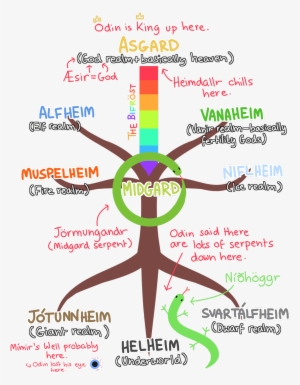 Odin is King up here.
ASGARD
(God realm + basically heaven)
Æsir = God
Heimdallr chills
here.
THE BIFRÖST
ALFHEIM
(Elf realm)
VANAHEIM
(Vanir realm - basically
fertility Gods)
MUSPELHEIM
(Fire realm)
MIDGARD
NIFLHEIM
(Ice realm)
Jörmungandr
(Midgard serpent)
Odin said there
are lots of serpents
down here.
Níðhöggr
JÖTUNNHEIM
(Giant realm)
Mímir's Well probably
here.
Odin lost his eye
here.
HELHEIM
(Underworld)
SVARTÁLFHEIM
(Dwarf realm)